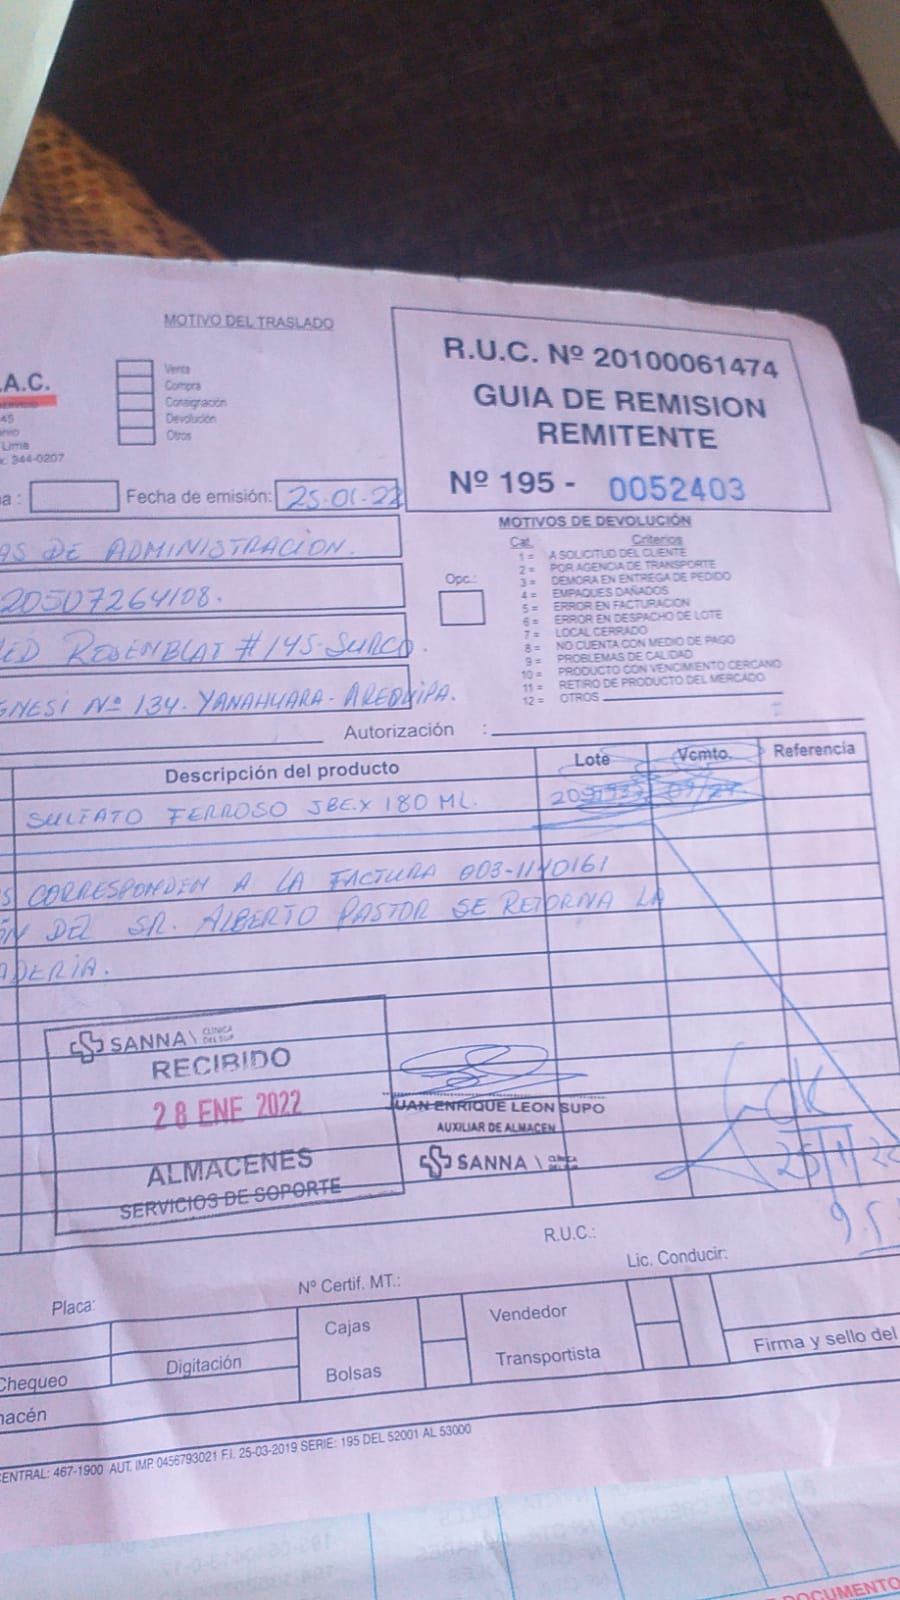 MOTIVO DEL TRASLADO
Venta
Compra
Consignación
Devolución
Otros
.A.C.
45
Lima
344-0207
R.U.C. Nº 20100061474
GUIA DE REMISION
REMITENTE
Nº 195 - 0052403
Fecha de emisión: 25-01-22
AS DE ADMINISTRACIÓN.
20507264108.
ED ROSENBLAT #145-SURCO.
GNESI Nº 134. YANAHUARA - AREQUIPA.
MOTIVOS DE DEVOLUCIÓN
Cat. Criterios
1 = A SOLICITUD DEL CLIENTE
2 = POR AGENCIA DE TRANSPORTE
3 = DEMORA EN ENTREGA DE PEDIDO
4 = EMPAQUES DAÑADOS
5 = ERROR EN FACTURACION
6 = ERROR EN DESPACHO DE LOTE
7 = LOCAL CERRADO
8 = NO CUENTA CON MEDIO DE PAGO
9 = PROBLEMAS DE CALIDAD
10 = PRODUCTO CON VENCIMIENTO CERCANO
11 = RETIRO DE PRODUCTO DEL MERCADO
12 = OTROS
Opc.:
Autorización :
Descripción del producto Lote Vcmto. Referencia
SULFATO FERROSO JBE.X 180 ML.
S CORRESPONDEN A LA FACTURA 003-1140161
ÓN DEL SR. ALBERTO PASTOR SE RETORNA LA
ADERIA.
SANNA\ CLINICA DEL SUR
RECIBIDO
28 ENE 2022
ALMACENES
SERVICIOS DE SOPORTE
JUAN ENRIQUE LEON SUPO
AUXILIAR DE ALMACEN
SANNA \
R.U.C.:
Lic. Conducir:
Nº Certif. MT.:
Placa:
Cajas
Bolsas
Vendedor
Transportista
Digitación
Chequeo
macén
Firma y sello del
CENTRAL: 467-1900 AUT. IMP. 0456793021 F.I. 25-03-2019 SERIE: 195 DEL 52001 AL 53000
DOCUMENTO